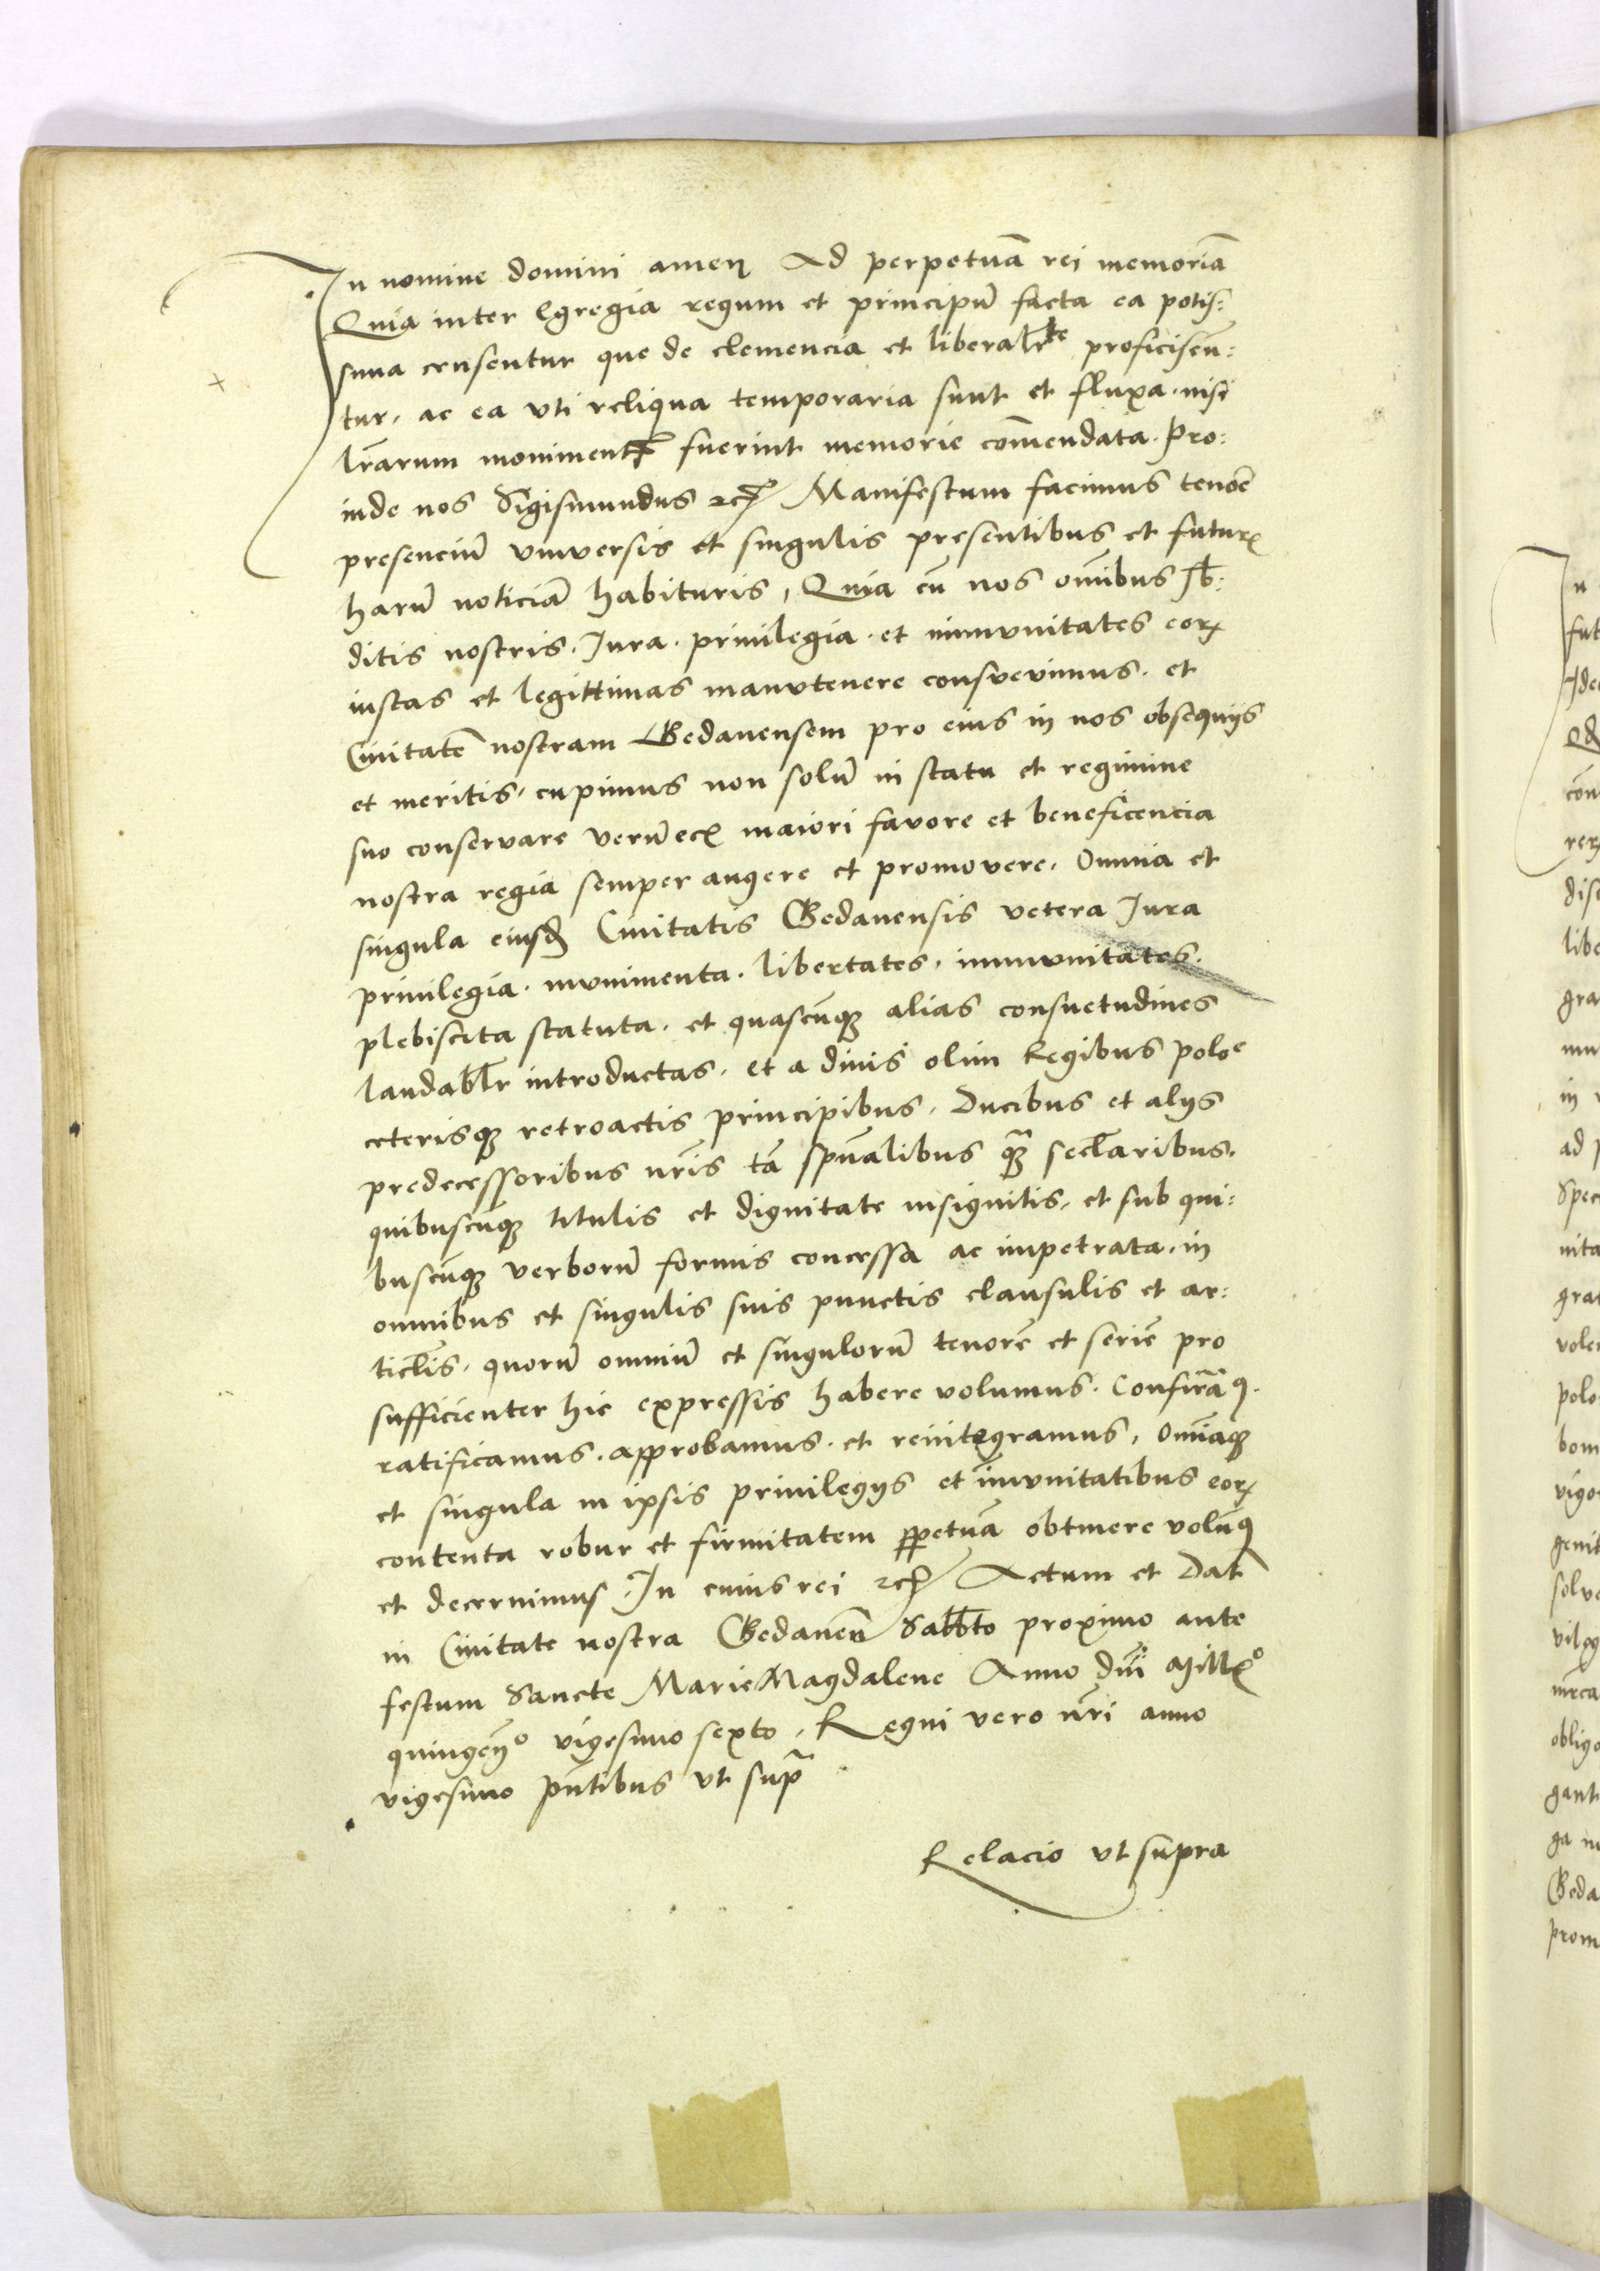 In nomine domini amen Ad perpetuā rei memoriā
Quia inter Egregia regum et principū facta ea potis:
sima censentur que de clemencia et liberalitͭe proficiscūn:
tur, ac ea vti reliqua temporaria sunt et fluxa. nisi
lrārum moniment̄ fuerint memorie com̄endata. Pro:
inde nos Sigismundus ꝛcꝫ Manifestum facimus tenorē
presenciū vniversis et singulis presentibus et futurꝭ
harū noticiā habituris, Quia cū nos om̄ibus sb̄:
ditis nostris. Jura. priuilegia. et immunitates eorꝝ
iustas et legittimas manutenere consvevimus. et
Ciuitatē nostram Gedanensem pro eius in nos obsequijs
et meritis, cupimus non solū in statu et regimine
suo conservare verū ecꝭ maiori favore et beneficencia
nostra regia semper augere et promovere. Omnia et
singula eiusdꝫ Ciuitatis Gedanensis vetera Jura
priuilegia. munimenta. libertates. immunitates.
plebiscita statuta. et quascūqꝫ alias consuetudines
laudabl̄r introductas. et a diuis olim Regibus poloe
ceterisqꝫ retroactis principibus. Ducibus et alijs
predecessoribus nr̄is tā spūalibus qꝫ̄ secl̄aribus.
quibuscūqꝫ titulis et dignitate insignitis. et sub qui:
buscūqꝫ verborū formis concessa ac impetrata. in
omnibus et singulis suis punctis clausulis et ar:
ticl̄is. quorū omniū et singulorū tenorē et seriē pro
sufficienter hic expressis habere volumus. Confirmāꝰ.
ratificamus. approbamus. et reintegramus, Om̄iaqꝫ
et singula in ipsis priuilegijs et im̄vnitatibus eorꝝ
contenta robur et firmitatem ꝑpetuā obtinere volumꝰ
et decernimus. In cuius rei ꝛcꝫ Actum et Dat̄
in Ciuitate nostra Gedaneñ Sabb̄to proximo ante
festum Sancte Marie Magdalene Anno dn̄i Millꝭo
quingeño vigesimo sexto, Regni vero nr̄i anno
vigesimo pn̄tibus vt supꝛ̄
Relacio vt supra